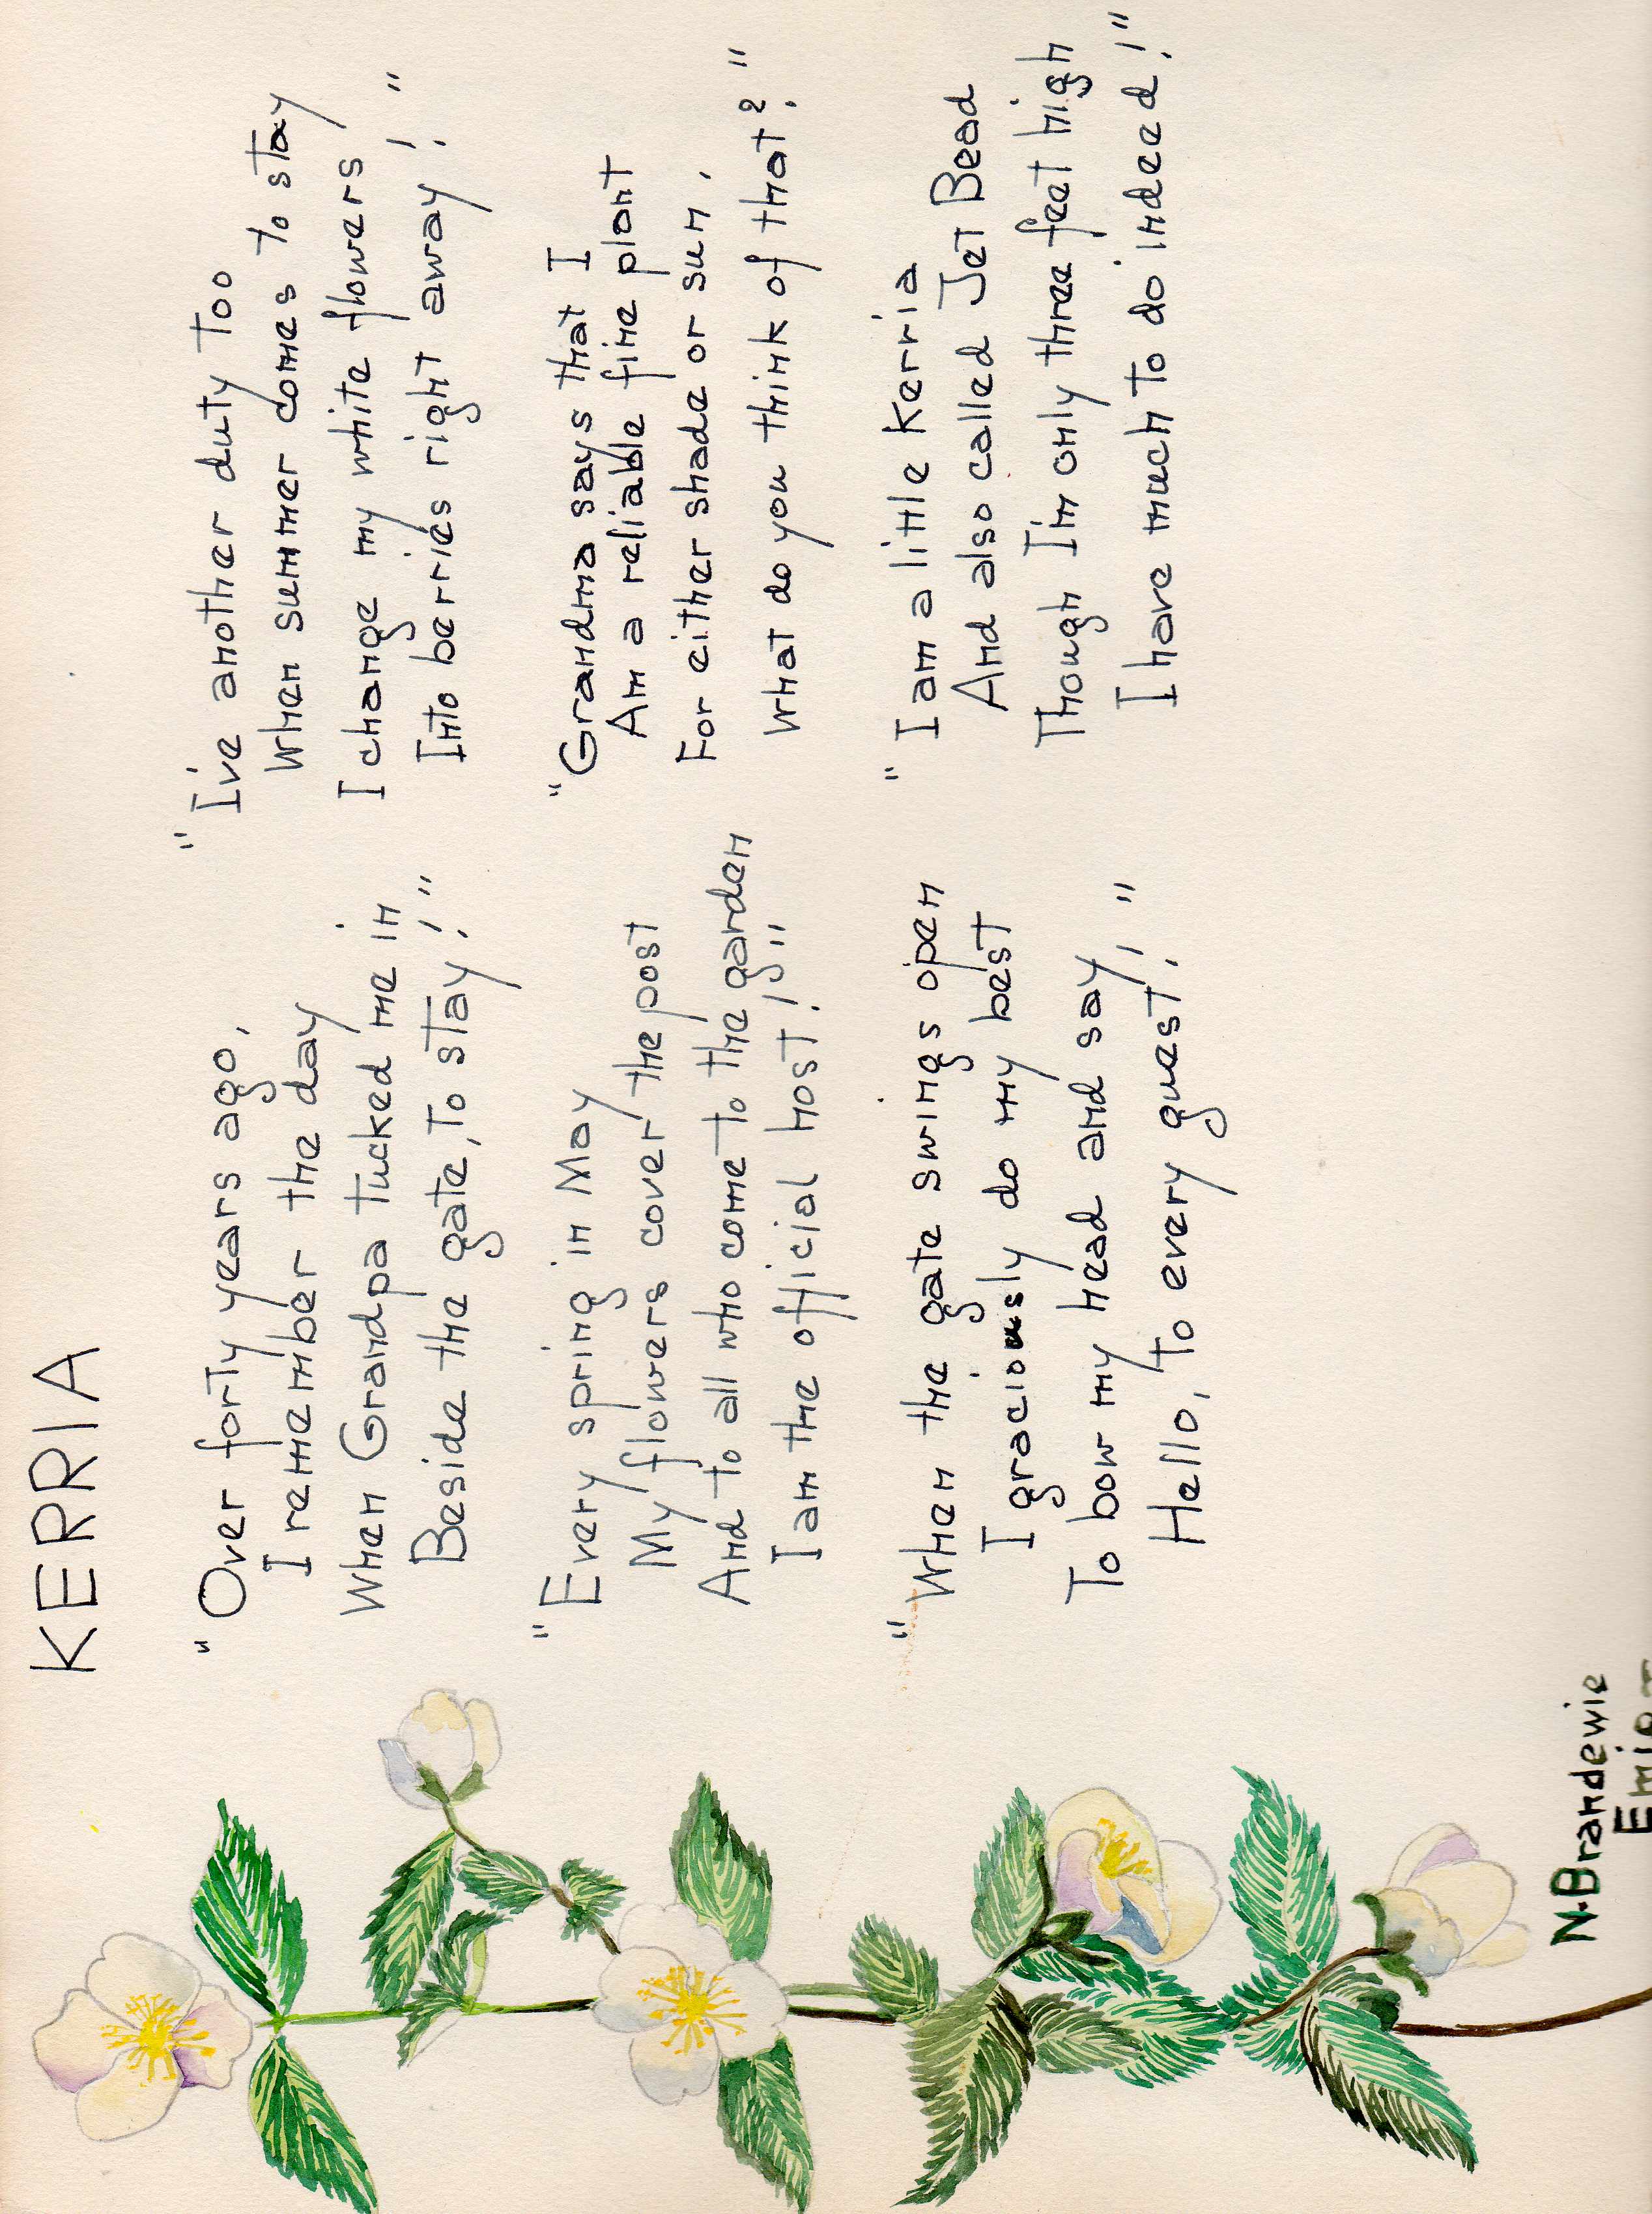 KERRIA
"Over forty years ago,
I remember the day
When Grandpa tucked me in
Beside the gate, to stay!"
"Every spring in May
My flowers cover the post
And to all who come to the garden
I am the official host!"
"When the gate swings open
I graciously do my best
To bow my head and say,
Hello, to every guest!"
"I've another duty too
When summer comes to stay
I change my white flowers
Into berries right away!"
"Grandma says that I
Am a reliable fine plant
For either shade or sun,
What do you think of that?"
"I am a little Kerria
And also called Jet Bead
Though I'm only three feet high
I have much to do indeed!"
N. Brandewie